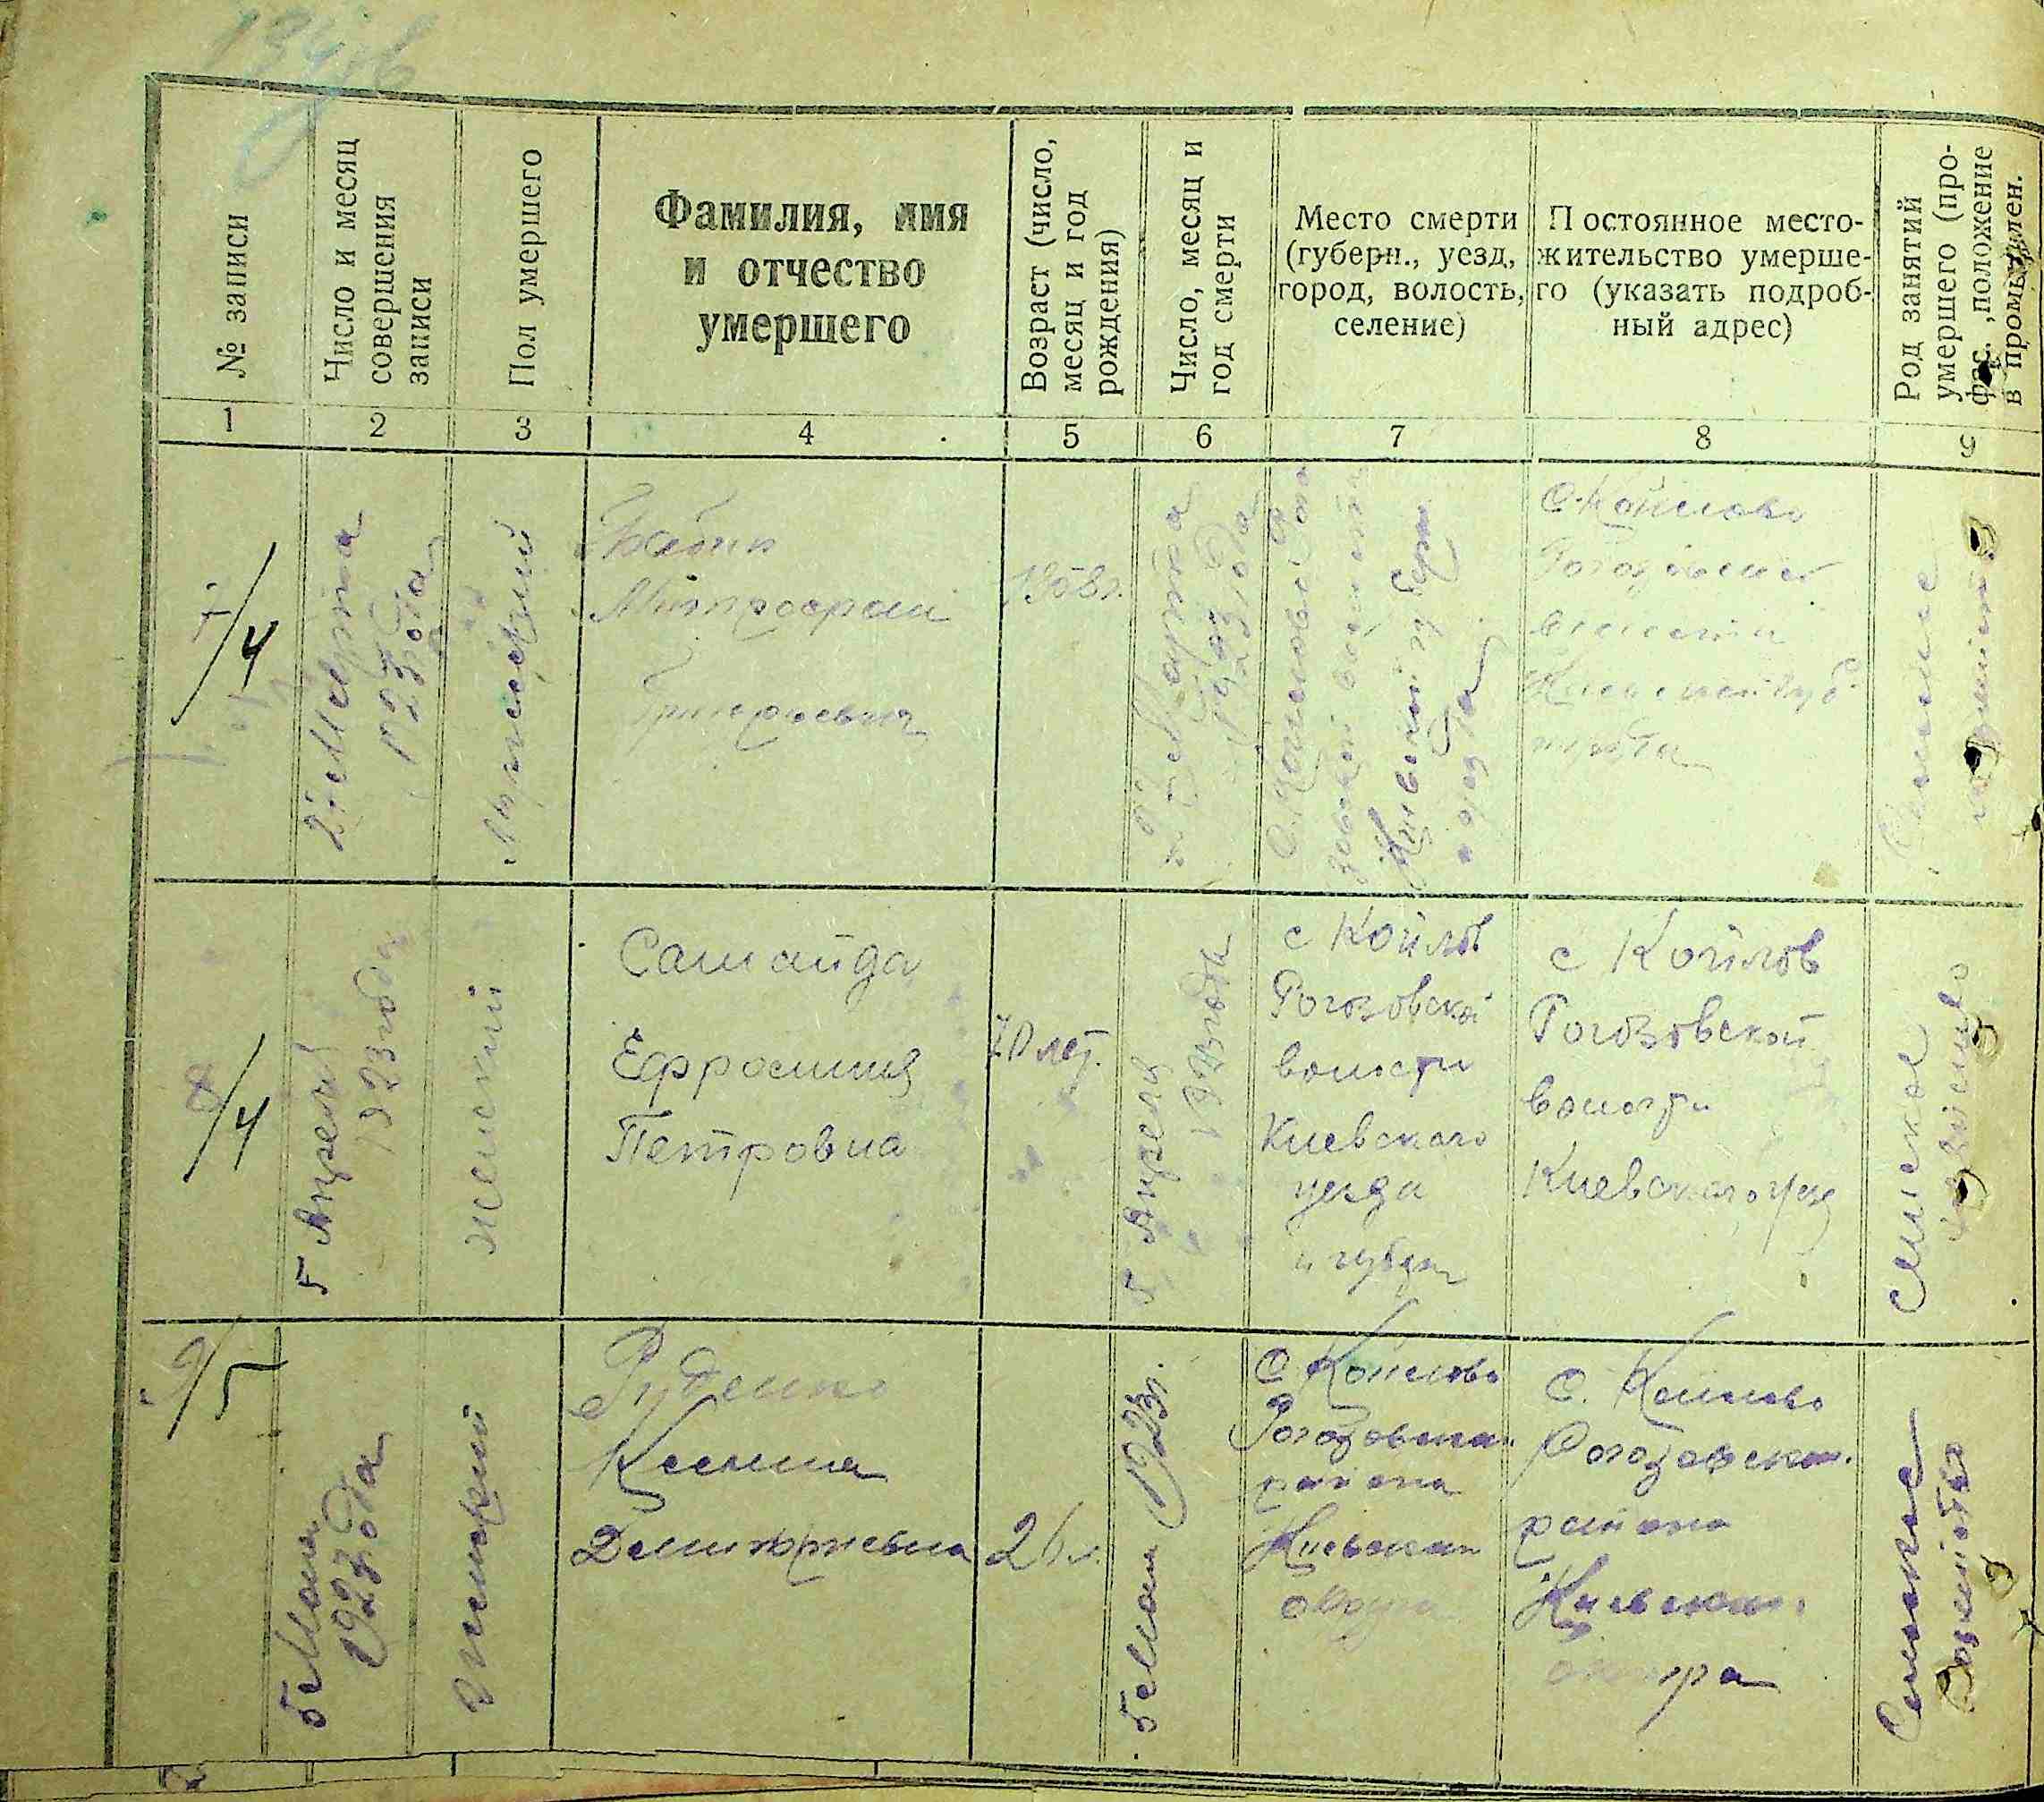 № записи
Число и месяц
совершения
записи
Пол умершего
Фамилия, имя
и отчество
умершего
Возраст (число,
месяц и год
рождения)
Число, месяц и
год смерти
Место смерти
(губерн., уезд,
город, волость,
селение)
Постоянное место-
жительство умерше-
го (указать подроб-
ный адрес)
Род занятий
умершего (про-
фес., положение
в промышлен.
1
2
3
4
5
6
7
8
9
7/4
2 Марта
1923 года
Мужеский
Бабик
Митрофан
Григориевич
Марта
1923 года
Киевской губерн
и уезда
С. Койлово
волости
8/4
5 Апреля
1923 года
женский
Самайда
Ефросиния
Петровна
70 лет.
5 Апреля
1923 года
с Койлов
Рогозовской
волости
Киевского
уезда
и губерн
с Койлов
Рогозовской
волости
Киевского уез
Сельское
9/5
5 Мая
1923 года
Женский
Руденко
Ксения
Димитриевна
2
5 Мая 1923 г.
С. Койлово
Рогозовская
района
Киевская
округа
С. Койлово
Рогозовская
района
Киевская
округа
Сельское